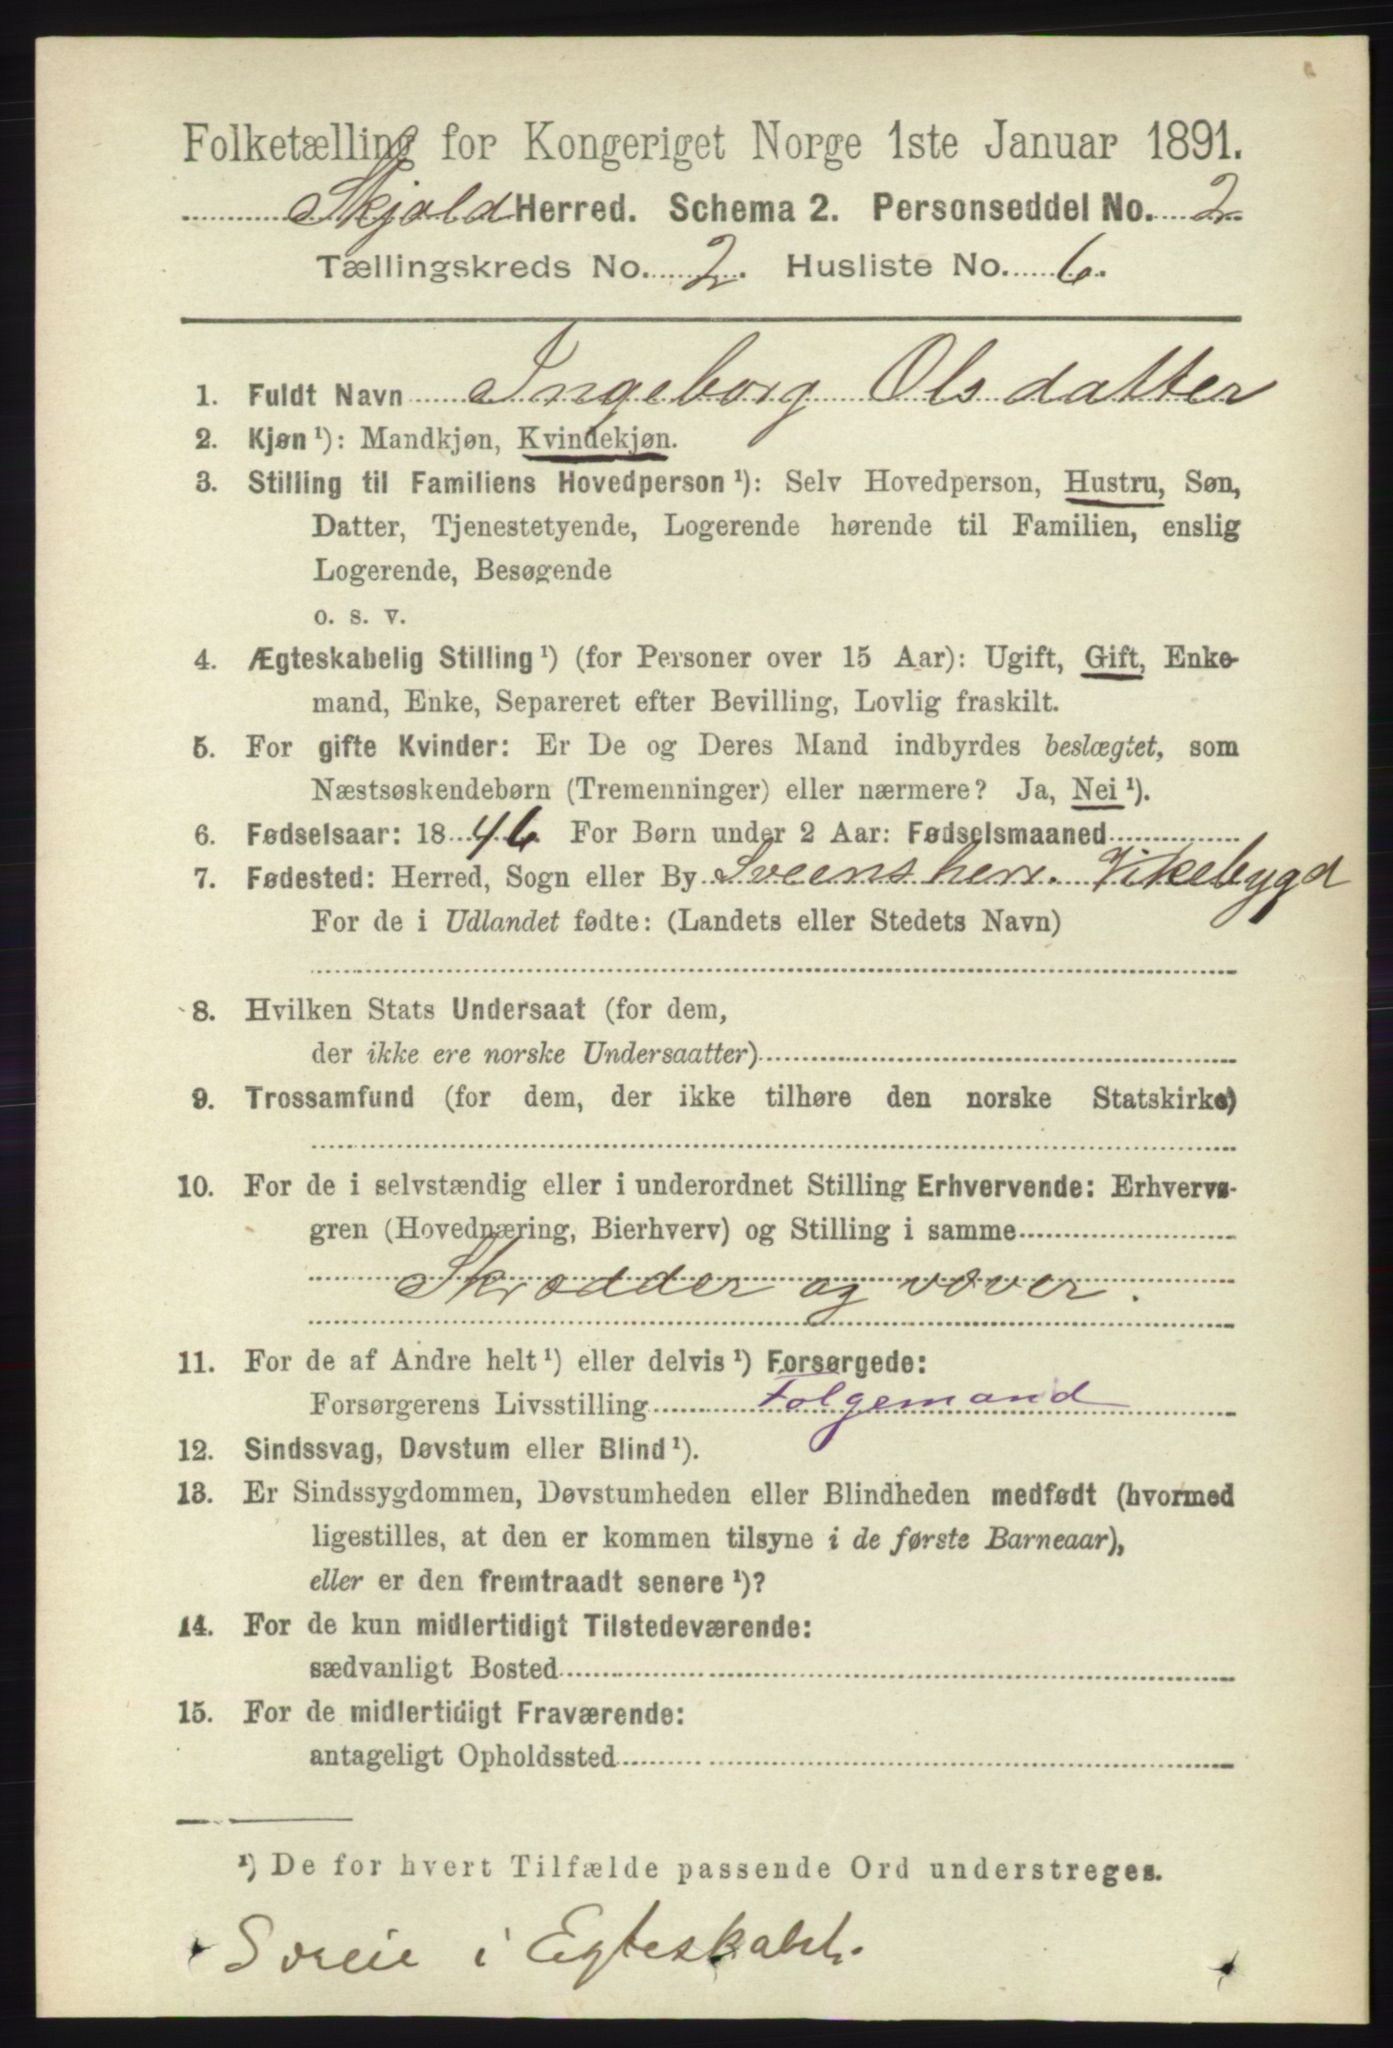 Folketælling for Kongeriget Norge 1ste Januar 1891.
Skjold Herred. Schema 2. Personseddel No. 2
Tællingskreds No. 2. Husliste No. 6.
1. Fuldt Navn Ingeborg Olsdatter
2. Kjøn¹): Mandkjøn, Kvindekjøn.
3. Stilling til Familiens Hovedperson¹): Selv Hovedperson, Hustru, Søn,
Datter, Tjenestetyende, Logerende hørende til Familien, enslig
Logerende, Besøgende
o. s. v.
4. Ægteskabelig Stilling¹) (for Personer over 15 Aar): Ugift, Gift, Enke-
mand, Enke, Separeret efter Bevilling, Lovlig fraskilt.
5. For gifte Kvinder: Er De og Deres Mand indbyrdes beslægtet, som
Næstsøskendebørn (Tremenninger) eller nærmere? Ja, Nei¹).
6. Fødselsaar: 1846 For Børn under 2 Aar: Fødselsmaaned
7. Fødested: Herred, Sogn eller By Sveens herr. Vikebygd
For de i Udlandet fødte: (Landets eller Stedets Navn)
8. Hvilken Stats Undersaat (for dem,
der ikke ere norske Undersaatter)
9. Trossamfund (for dem, der ikke tilhøre den norske Statskirke)
10. For de i selvstændig eller i underordnet Stilling Erhvervende: Erhvervs-
gren (Hovednæring, Bierhverv) og Stilling i samme
Skrædder og væver.
11. For de af Andre helt¹) eller delvis¹) Forsørgede:
Forsørgerens Livsstilling Folgemand
12. Sindssvag, Døvstum eller Blind¹).
13. Er Sindssygdommen, Døvstumheden eller Blindheden medfødt (hvormed
ligestilles, at den er kommen tilsyne i de første Barneaar),
eller er den fremtraadt senere¹)?
14. For de kun midlertidigt Tilstedeværende:
sædvanligt Bosted
15. For de midlertidigt Fraværende:
antageligt Opholdssted
¹) De for hvert Tilfælde passende Ord understreges.
i Egteskabet.